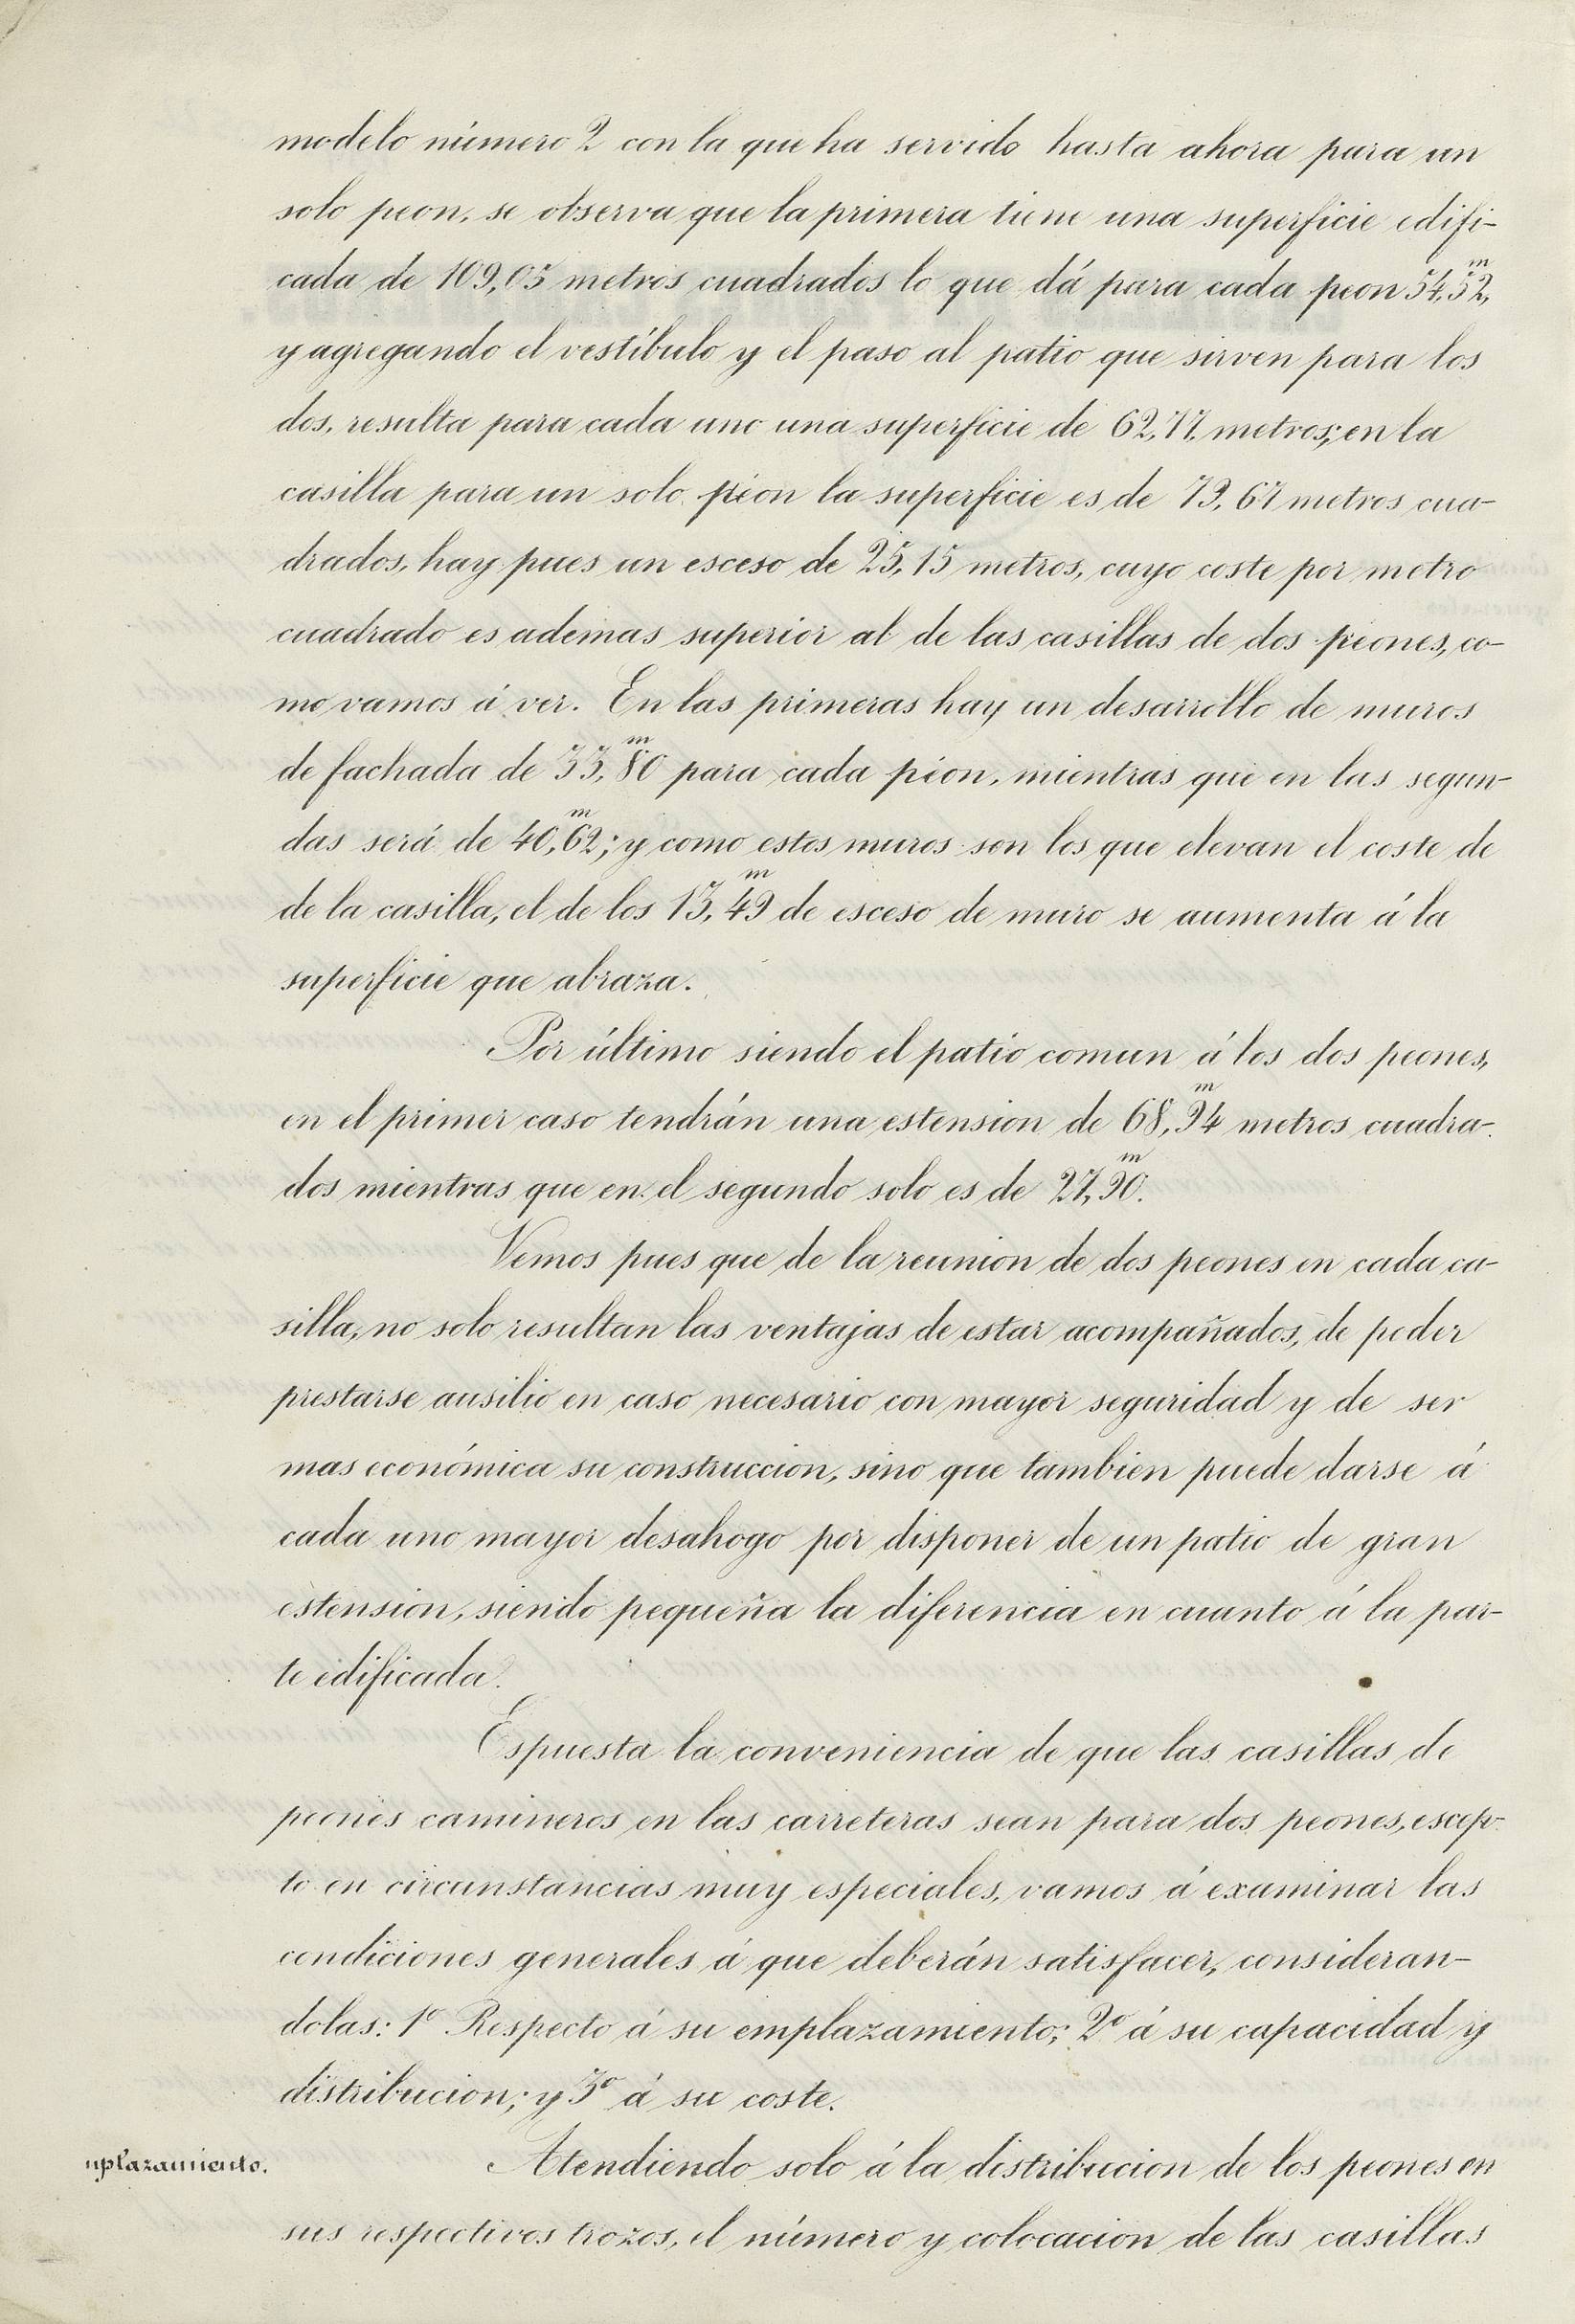 modelo número 2 con la que ha servido hasta ahora para un
solo peon, se observa que la primera tiene una superficie edifi-
cada de 109,05 metros cuadrados lo que dá para cada peon 54,ᵐ52,
y agregando el vestíbulo y el paso al patio que sirven para los
dos, resulta para cada uno una superficie de 62,77, metros; en la
casilla para un solo peon la superficie es de 79,67 metros cua-
drados, hay pues un esceso de 25,15 metros, cuyo coste por metro
cuadrado es ademas superior al de las casillas de dos peones, co-
mo vamos á ver. En las primeras hay un desarrollo de muros
de fachada de 33,ᵐ80 para cada peon, mientras que en las segun-
das será de 40,ᵐ62; y como estos muros son los que elevan el coste de
de la casilla, el de los 13,ᵐ49 de esceso de muro se aumenta á la
superficie que abraza.
Por último siendo el patio comun á los dos peones,
en el primer caso tendrán una estension de 68,ᵐ94 metros cuadra-
dos mientras que en el segundo solo es de 27,ᵐ90.
Vemos pues que de la reunion de dos peones en cada ca-
silla, no solo resultan las ventajas de estar acompañados, de poder
prestarse ausilio en caso necesario con mayor seguridad y de ser
mas económica su construccion, sino que tambien puede darse á
cada uno mayor desahogo por disponer de un patio de gran
estension, siendo pequeña la diferencia en cuanto á la par-
te edificada.
Espuesta la conveniencia de que las casillas de
peones camineros en las carreteras sean para dos peones, escep-
to en circunstancias muy especiales, vamos á examinar las
condiciones generales á que deberán satisfacer, consideran-
dolas: 1º Respecto á su emplazamiento; 2º á su capacidad y
distribucion; y 3º á su coste.
mplazamiento.
Atendiendo solo á la distribucion de los peones en
sus respectivos trozos, el número y colocacion de las casillas